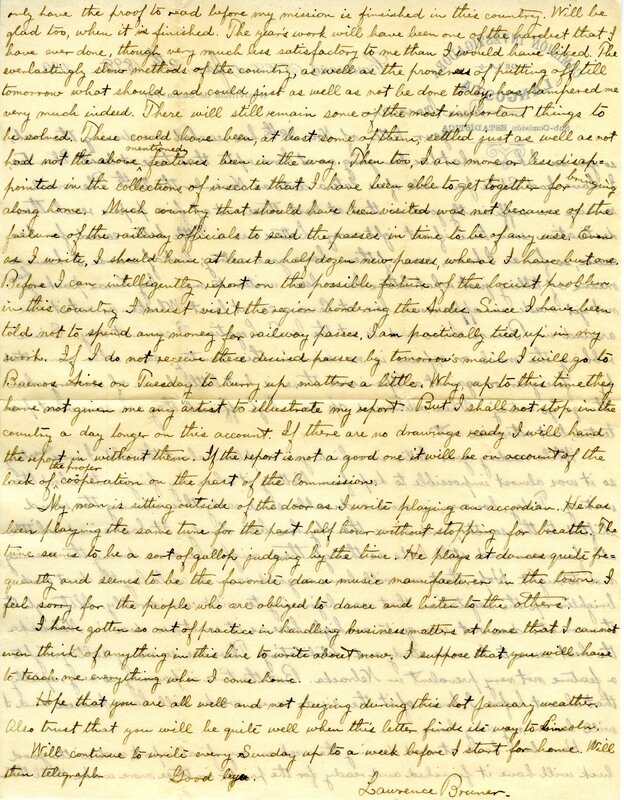 only have the proof to read before my mission is finished in this country. Will be
glad too, when it is finished. The year's work will have been one of the hardest that I
have ever done, though very much less satisfactory to me than I would have liked. The
everlastingly slow methods of the country, as well as the proneness of putting off till
tomorrow what should and could just as well as not be done today, has hampered me
very much indeed. There will still remain some of the most important things to
be solved. These could have been, at least some of them, settled just as well as not
had not the above mentioned features been in the way. Then too, I am more or less disap-
pointed in the collections of insects that I have been able to get together for bringing
along home. Much country that should have been visited was not because of the
failure of the railway officials to send the passes in time to be of any use. Even
as I write, I should have at least a half dozen new passes, whereas I have but one.
Before I can intelligently report on the possible future of the locust problem
in this country I must visit the region bordering the Andes. Since I have been
told not to spend any money for railway passes, I am practically tied up in my
work. If I do not receive these desired passes by tomorrow's mail I will go to
Buenos Aires on Tuesday to hurry up matters a little. Why, up to this time they
have not given me any artist to illustrate my report. But I shall not stop in the
country a day longer on this account. If there are no drawings ready I will hand
the report in without them. If the report is not a good one it will be on account of the
lack of the proper coöperation on the part of the Commission.
My man is sitting outside of the door as I write playing an accordian. He has
been playing the same tune for the past half hour without stopping for breath. The
tune seems to be a sort of gallop judging by the time. He plays at dances quite fre-
quently and seems to be the favorite dance music manufacturer in the town. I
feel sorry for the people who are obliged to dance and listen to the others.
I have gotten so out of practice in handling business matters at home that I cannot
even think of anything in this line to write about now. I suppose that you will have
to teach me everything when I come home.
Hope that you are all well and not freezing during this hot January weather.
Also trust that you will be quite well when this letter finds its way to Lincoln.
Will continue to write every Sunday up to a week before I start for home. Will
then telegraph. Good bye.
Lawrence Bruner.